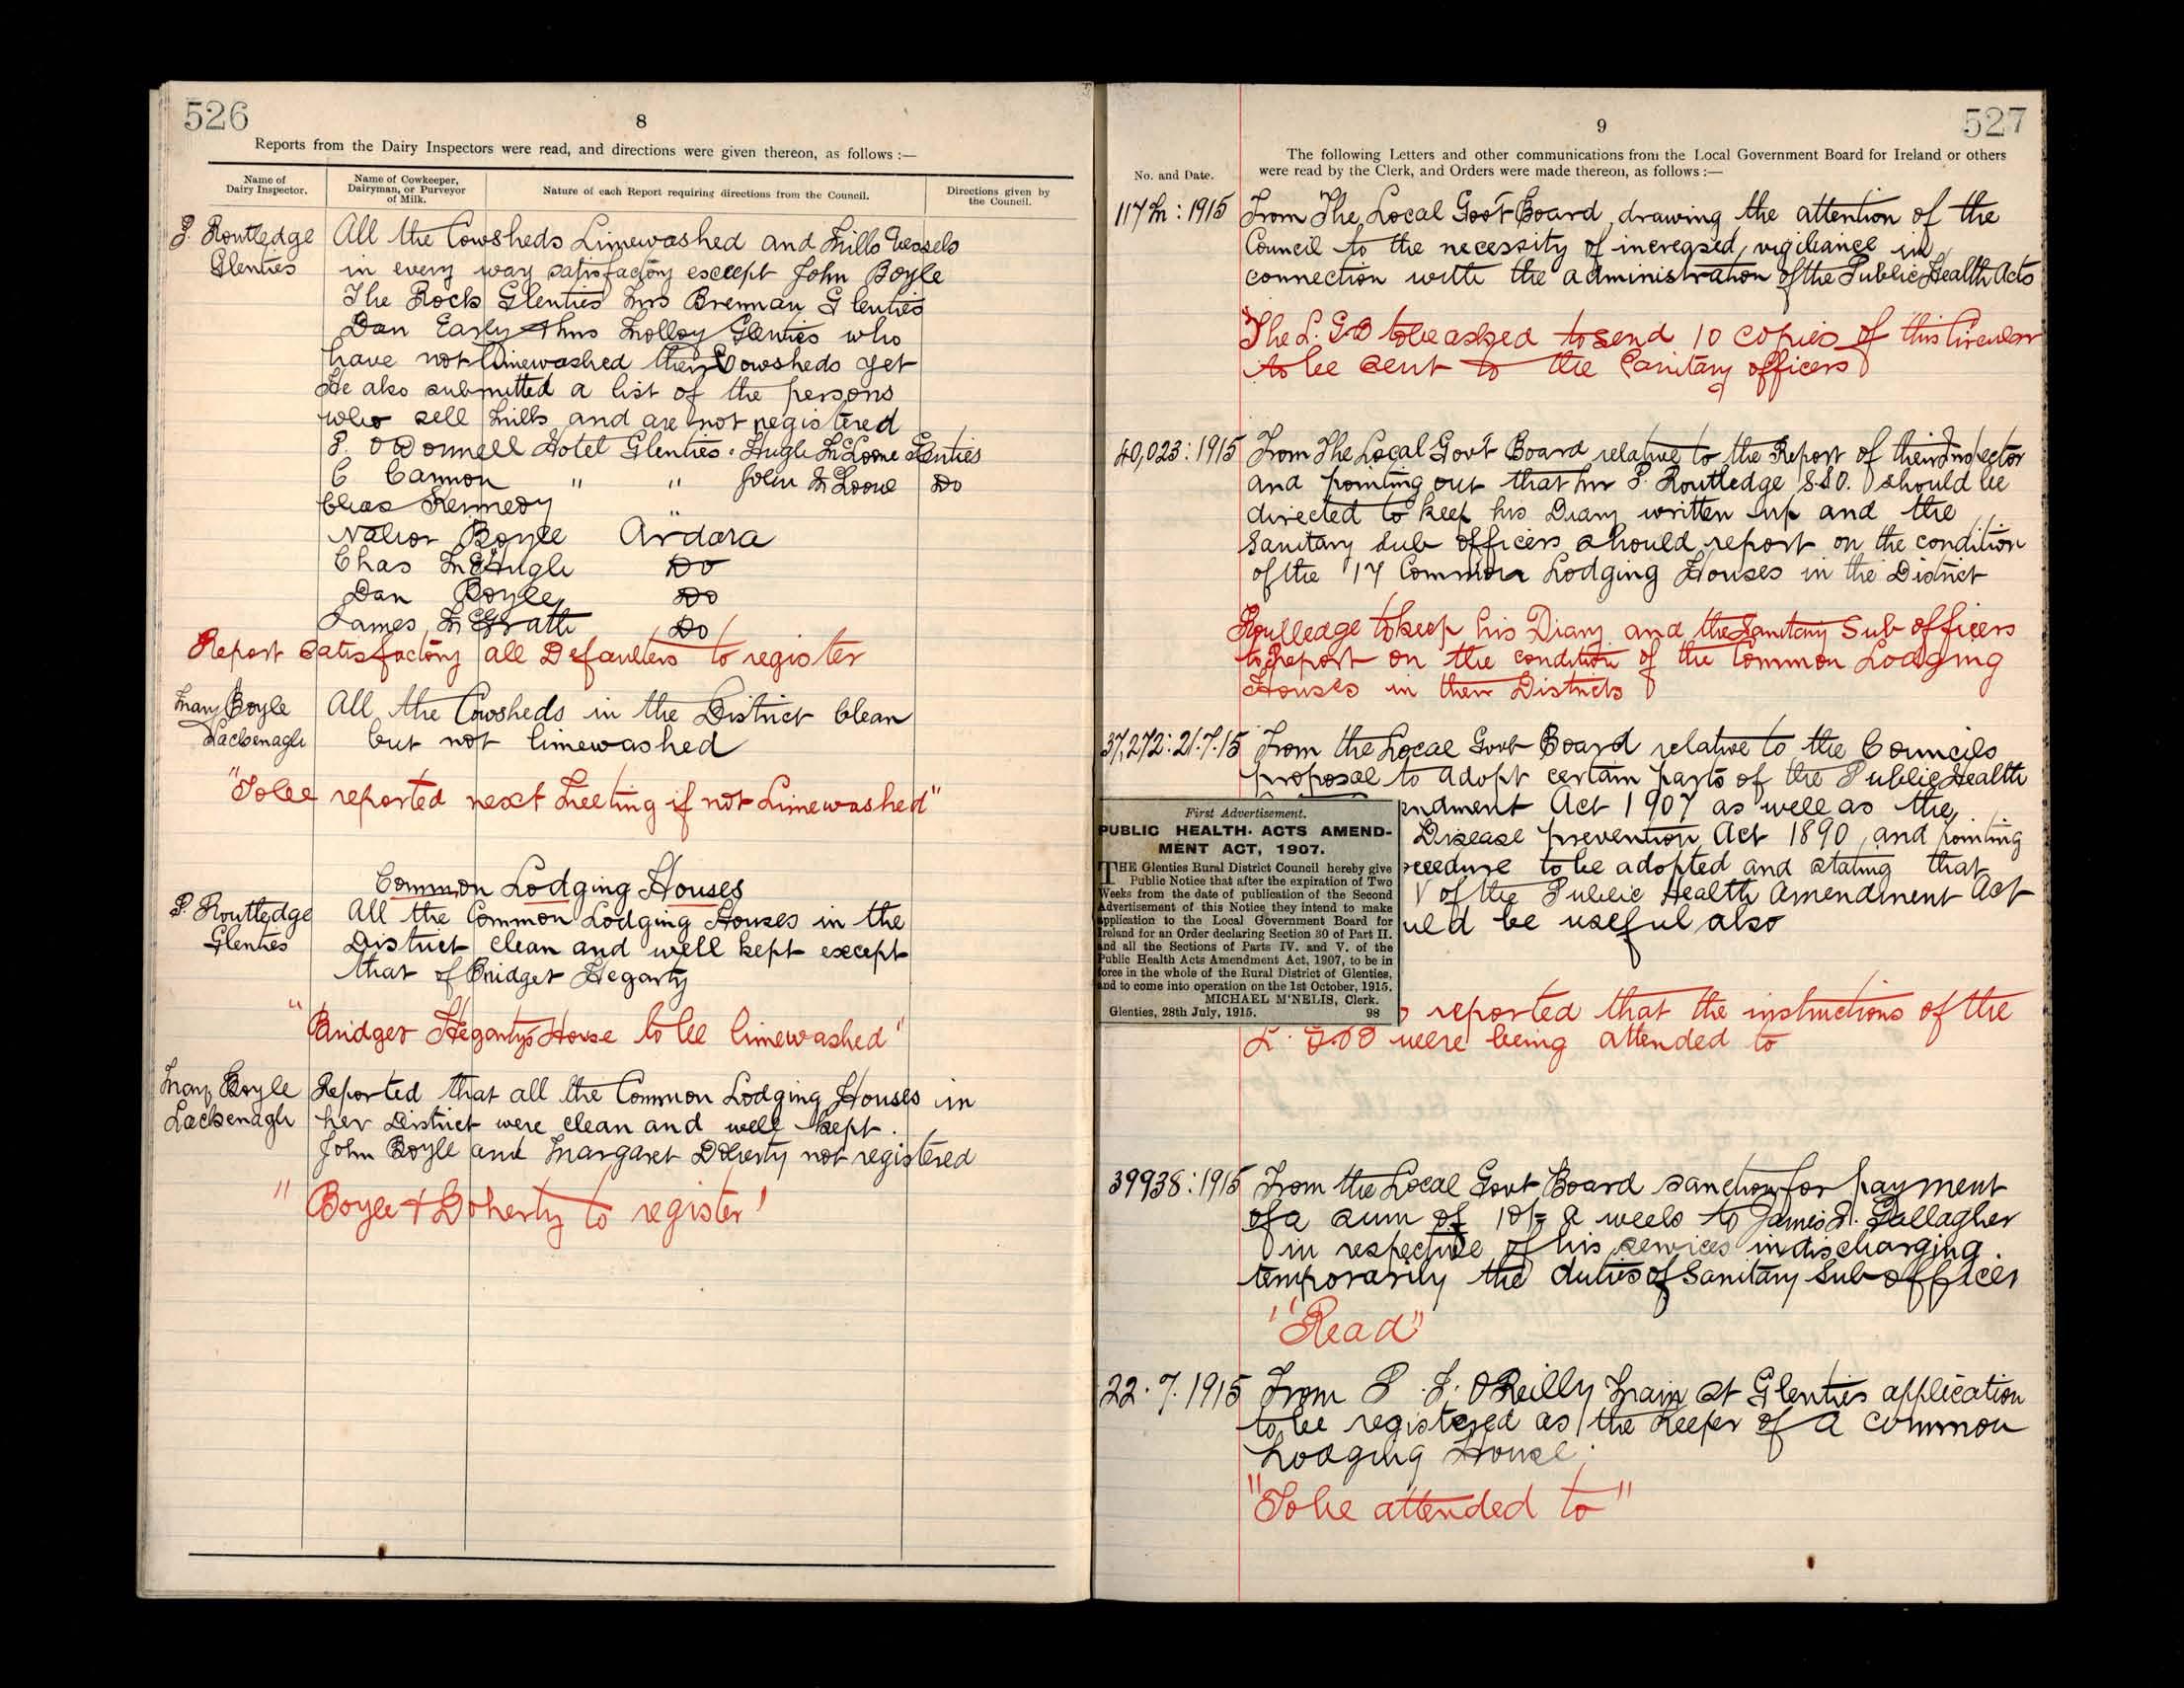 526
8
Reports from the Dairy Inspectors were read, and directions were given thereon, as follows :—
Name of Dairy Inspector.
Name of Cowkeeper, Dairyman, or Purveyor of Milk.
Nature of each Report requiring directions from the Council.
Directions given by the Council.
P. Routledge
Glenties
All the Cowsheds Limewashed and Milk Vessels
in every way satisfactory except John Boyle
The Rock Glenties Mrs Brennan Glenties
Dan Early & Mrs Molloy Glenties who
have not limewashed their Cowsheds yet
He also submitted a list of the persons
who sell Milk and are not registered
P. O'Donnell Hotel Glenties. Hugh McLoone Glenties
C Cannon " " John McLoone Do
Chas Kennedy "
Boyle Ardara
Chas McHugh Do
Dan Boyle Do
James McGrath Do
Report Satisfactory all Defaulters to register
Mary Boyle
Lackenagh
All the Cowsheds in the District Clean
but not limewashed
"To be reported next Meeting if not Limewashed"
Common Lodging Houses
P. Routledge
Glenties
All the Common Lodging Houses in the
District clean and well kept except
that of Bridget Hegarty
"Bridget Hegarty's House to be limewashed"
Mary Boyle
Lackenagh
Reported that all the Common Lodging Houses in
her District were clean and well kept.
John Boyle and Margaret Doherty not registered
"Boyle & Doherty to register"
527
9
No. and Date.
The following Letters and other communications from the Local Government Board for Ireland or others
were read by the Clerk, and Orders were made thereon, as follows :—
117 M : 1915
From The Local Govt Board drawing the attention of the
Council to the necessity of increased vigilance in
connection with the administration of the Public Health Acts
"The L.G.B to be asked to send 10 copies of this Circular
to be sent to the Sanitary officers
40,023 : 1915
From The Local Govt Board relative to the Report of their Inspector
and pointing out that Mr P. Routledge S.S.O. should be
directed to keep his Diary written up and the
Sanitary Sub officers should report on the condition
of the 17 Common Lodging Houses in the District
Routledge to keep his Diary and the Sanitary Sub officers
to Report on the condition of the Common Lodging
Houses in their Districts
37,272 : 21.7.15
From the Local Govt Board relative to the Councils
proposal to adopt certain parts of the Public Health
endment Act 1907 as well as the
Disease prevention Act 1890 and pointing
rocedure to be adopted and stating that
V of the Public Health Amendment Act
uld be useful also
First Advertisement.
PUBLIC HEALTH ACTS AMEND-
MENT ACT, 1907.
THE Glenties Rural District Council hereby give
Public Notice that after the expiration of Two
Weeks from the date of publication of the Second
Advertisement of this Notice they intend to make
application to the Local Government Board for
Ireland for an Order declaring Section 30 of Part II.
and all the Sections of Parts IV. and V. of the
Public Health Acts Amendment Act, 1907, to be in
force in the whole of the Rural District of Glenties,
and to come into operation on the 1st October, 1915.
MICHAEL M'NELIS, Clerk.
Glenties, 28th July, 1915. 98
reported that the instructions of the
L.G.B were being attended to
39938 : 1915
From the Local Govt Board sanction for payment
of a sum of 10/- a week to James J. Gallagher
in respective of his services in discharging
temporarily the duties of Sanitary Sub officer
"Read"
22.7.1915
From P. J. O'Reilly Main St Glenties application
to be registered as the Keeper of a common
Lodging House.
"To be attended to"